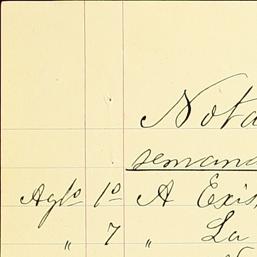 Nota
semana
Agto 1o A Exis
" 7 " La